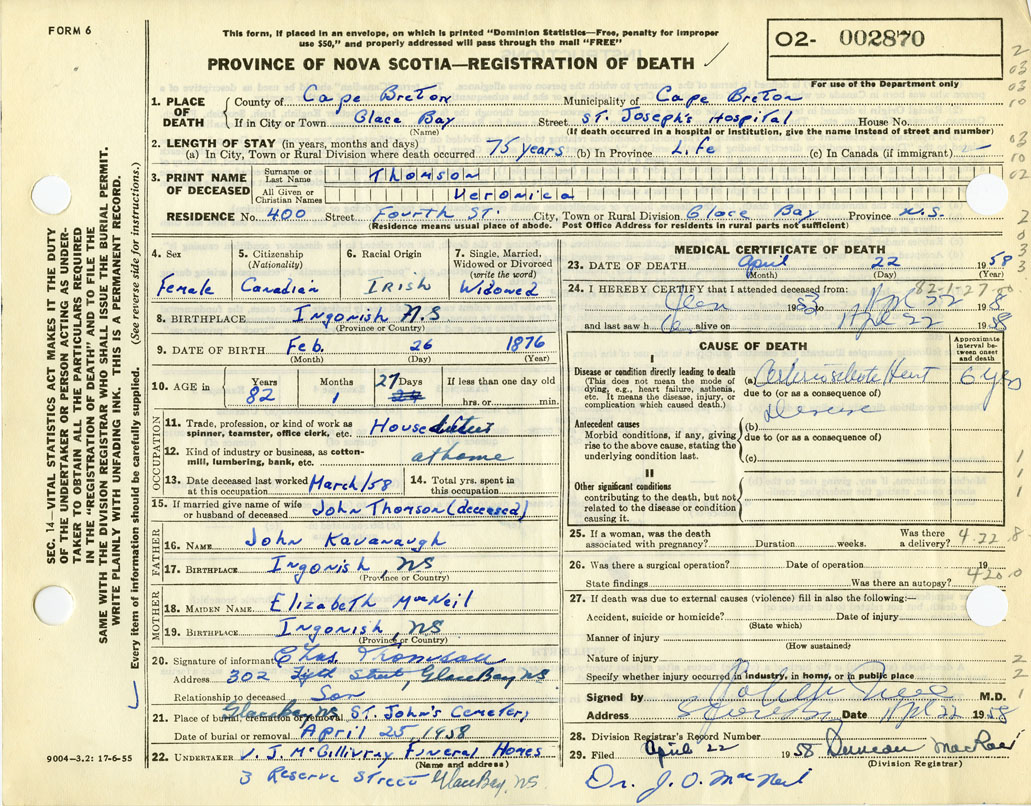 FORM 6
This form, if placed in an envelope, on which is printed "Dominion Statistics—Free, penalty for improper
use $50," and properly addressed will pass through the mail "FREE"
02- 002870
For use of the Department only
PROVINCE OF NOVA SCOTIA—REGISTRATION OF DEATH
SEC. 14—VITAL STATISTICS ACT MAKES IT THE DUTY
OF THE UNDERTAKER OR PERSON ACTING AS UNDER-
TAKER TO OBTAIN ALL THE PARTICULARS REQUIRED
IN THE "REGISTRATION OF DEATH" AND TO FILE THE
SAME WITH THE DIVISION REGISTRAR WHO SHALL ISSUE THE BURIAL PERMIT.
WRITE PLAINLY WITH UNFADING INK. THIS IS A PERMANENT RECORD.
Every item of information should be carefully supplied. (See reverse side for instructions.)
1. PLACE OF DEATH County of Cape Breton Municipality of Cape Breton
If in City or Town Glace Bay Street St. Joseph's Hospital House No.
(Name) (If death occurred in a hospital or institution, give the name instead of street and number)
2. LENGTH OF STAY (in years, months and days)
(a) In City, Town or Rural Division where death occurred 75 years (b) In Province Life (c) In Canada (if immigrant) —
3. PRINT NAME OF DECEASED Surname or Last Name Thomson
All Given or Christian Names Veronica
RESIDENCE No. 400 Street Fourth St. City, Town or Rural Division Glace Bay Province N.S.
(Residence means usual place of abode. Post Office Address for residents in rural parts not sufficient)
4. Sex 5. Citizenship (Nationality) 6. Racial Origin 7. Single, Married, Widowed or Divorced (write the word)
Female Canadian Irish Widowed
8. BIRTHPLACE Ingonish N.S
(Province or Country)
9. DATE OF BIRTH Feb. 26 1876
(Month) (Day) (Year)
10. AGE in Years Months 27 Days If less than one day old
82 1 hrs. or min.
OCCUPATION
11. Trade, profession, or kind of work as spinner, teamster, office clerk, etc. House duties
12. Kind of industry or business, as cotton-mill, lumbering, bank, etc. at home
13. Date deceased last worked at this occupation March/58 14. Total yrs. spent in this occupation
15. If married give name of wife or husband of deceased John Thomson (deceased)
FATHER
16. NAME John Kavanaugh
17. BIRTHPLACE Ingonish, NS
(Province or Country)
MOTHER
18. MAIDEN NAME Elizabeth MacNeil
19. BIRTHPLACE Ingonish, NS
(Province or Country)
20. Signature of informant Chas Thomson
Address 302 Street, Glace Bay, NS
Relationship to deceased Son
21. Place of burial, cremation or removal Glace Bay, NS St. John's Cemetery
Date of burial or removal April 25, 1958
22. UNDERTAKER V. J. McGillivray Funeral Homes
(Name and address)
3 Reserve Street Glace Bay, NS.
9004—3.2: 17-6-55
MEDICAL CERTIFICATE OF DEATH
23. DATE OF DEATH April 22 1958
(Month) (Day) (Year)
24. I HEREBY CERTIFY that I attended deceased from: 82-1-27
19 to Apl 22 19 8
and last saw h alive on Apl 22 1958
CAUSE OF DEATH
Approximate interval between onset and death
I
Disease or condition directly leading to death
(This does not mean the mode of dying, e.g., heart failure, asthenia, etc. It means the disease, injury, or complication which caused death.)
(a) Heart 6 yrs
due to (or as a consequence of)
Disease
Antecedent causes
Morbid conditions, if any, giving rise to the above cause, stating the underlying condition last.
(b)
due to (or as a consequence of)
(c)
II
Other significant conditions
contributing to the death, but not related to the disease or condition causing it.
25. If a woman, was the death associated with pregnancy? Duration weeks. Was there a delivery? 4.22.8
26. Was there a surgical operation? Date of operation 19
State findings Was there an autopsy? 420.0
27. If death was due to external causes (violence) fill in also the following:—
Accident, suicide or homicide? Date of injury
(State which)
Manner of injury
(How sustained)
Nature of injury
Specify whether injury occurred in industry, in home, or in public place
Signed by M.D.
Address Date Apl 22 1958
28. Division Registrar's Record Number
29. Filed April 22 1958 Duncan MacRae
(Division Registrar)
Dr. J. O. MacNeil